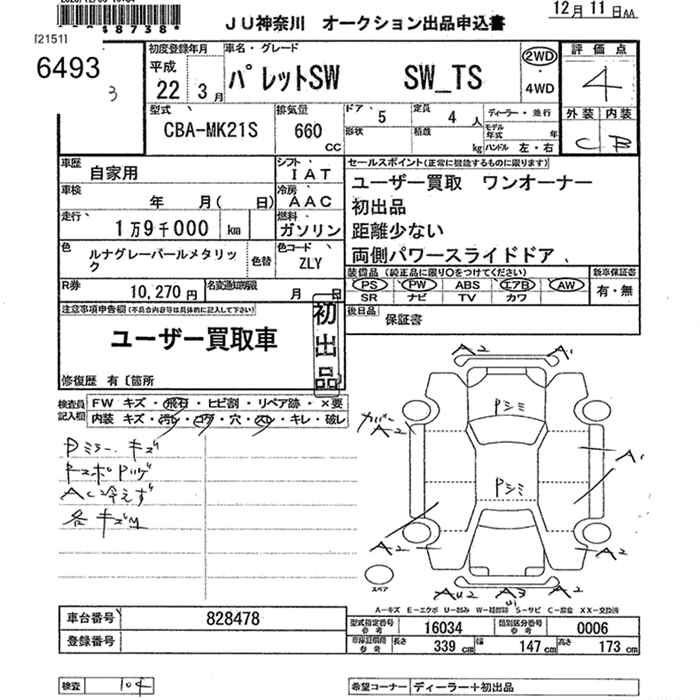 8738
JU神奈川 オークション出品申込書
12月11日AA
[2151]
6493
3
初度登録年月
平成
22 3月
車名・グレード
パレットSW SW_TS
2WD
・
4WD
評価点
4
外装 内装
C B
型式
CBA-MK21S
排気量
660
CC
ドア
5
形状
定員
4人
積載
kg
ディーラー・並行
モデル年式 年
ハンドル 左・右
車歴
自家用
シフト
IAT
車検
年 月( 日)
冷房
AAC
走行
1万9千000 km
燃料
ガソリン
色
ルナグレーパールメタリック
色替
色コード
ZLY
R券
10,270円
月 日
セールスポイント(正常に機能するものに限ります)
ユーザー買取 ワンオーナー
初出品
距離少ない
両側パワースライドドア
装備品 (純正品に限り○をつけてください)
新車保証書
PS PW ABS エアB AW
SR ナビ TV カワ
有・無
後日品
保証書
注意事項申告欄(不具合内容等は具体的に記入して下さい)
ユーザー買取車
初出品
修復歴 有〔箇所
検査員記入欄
FW キズ・飛石・ヒビ割・リペア跡・×要
内装 キズ・汚れ・コゲ・穴・スレ・キレ・破レ
Pミラーキズ
AC冷えず
各キズM
A2 A1
Pシミ
ガバ
A2
A1
Pシミ
A2 A2
AU2 A3 A2
スペア
A-キズ E-エクボ U-凹み W-補修跡 S-サビ C-腐食 XX-交換済
車台番号
828478
登録番号
型式指定番号
参考
16034
類別区分番号
参考
0006
車庫証明用
参考
長さ
339cm
幅
147cm
高さ
173cm
検査
104
希望コーナー
ディーラー+初出品